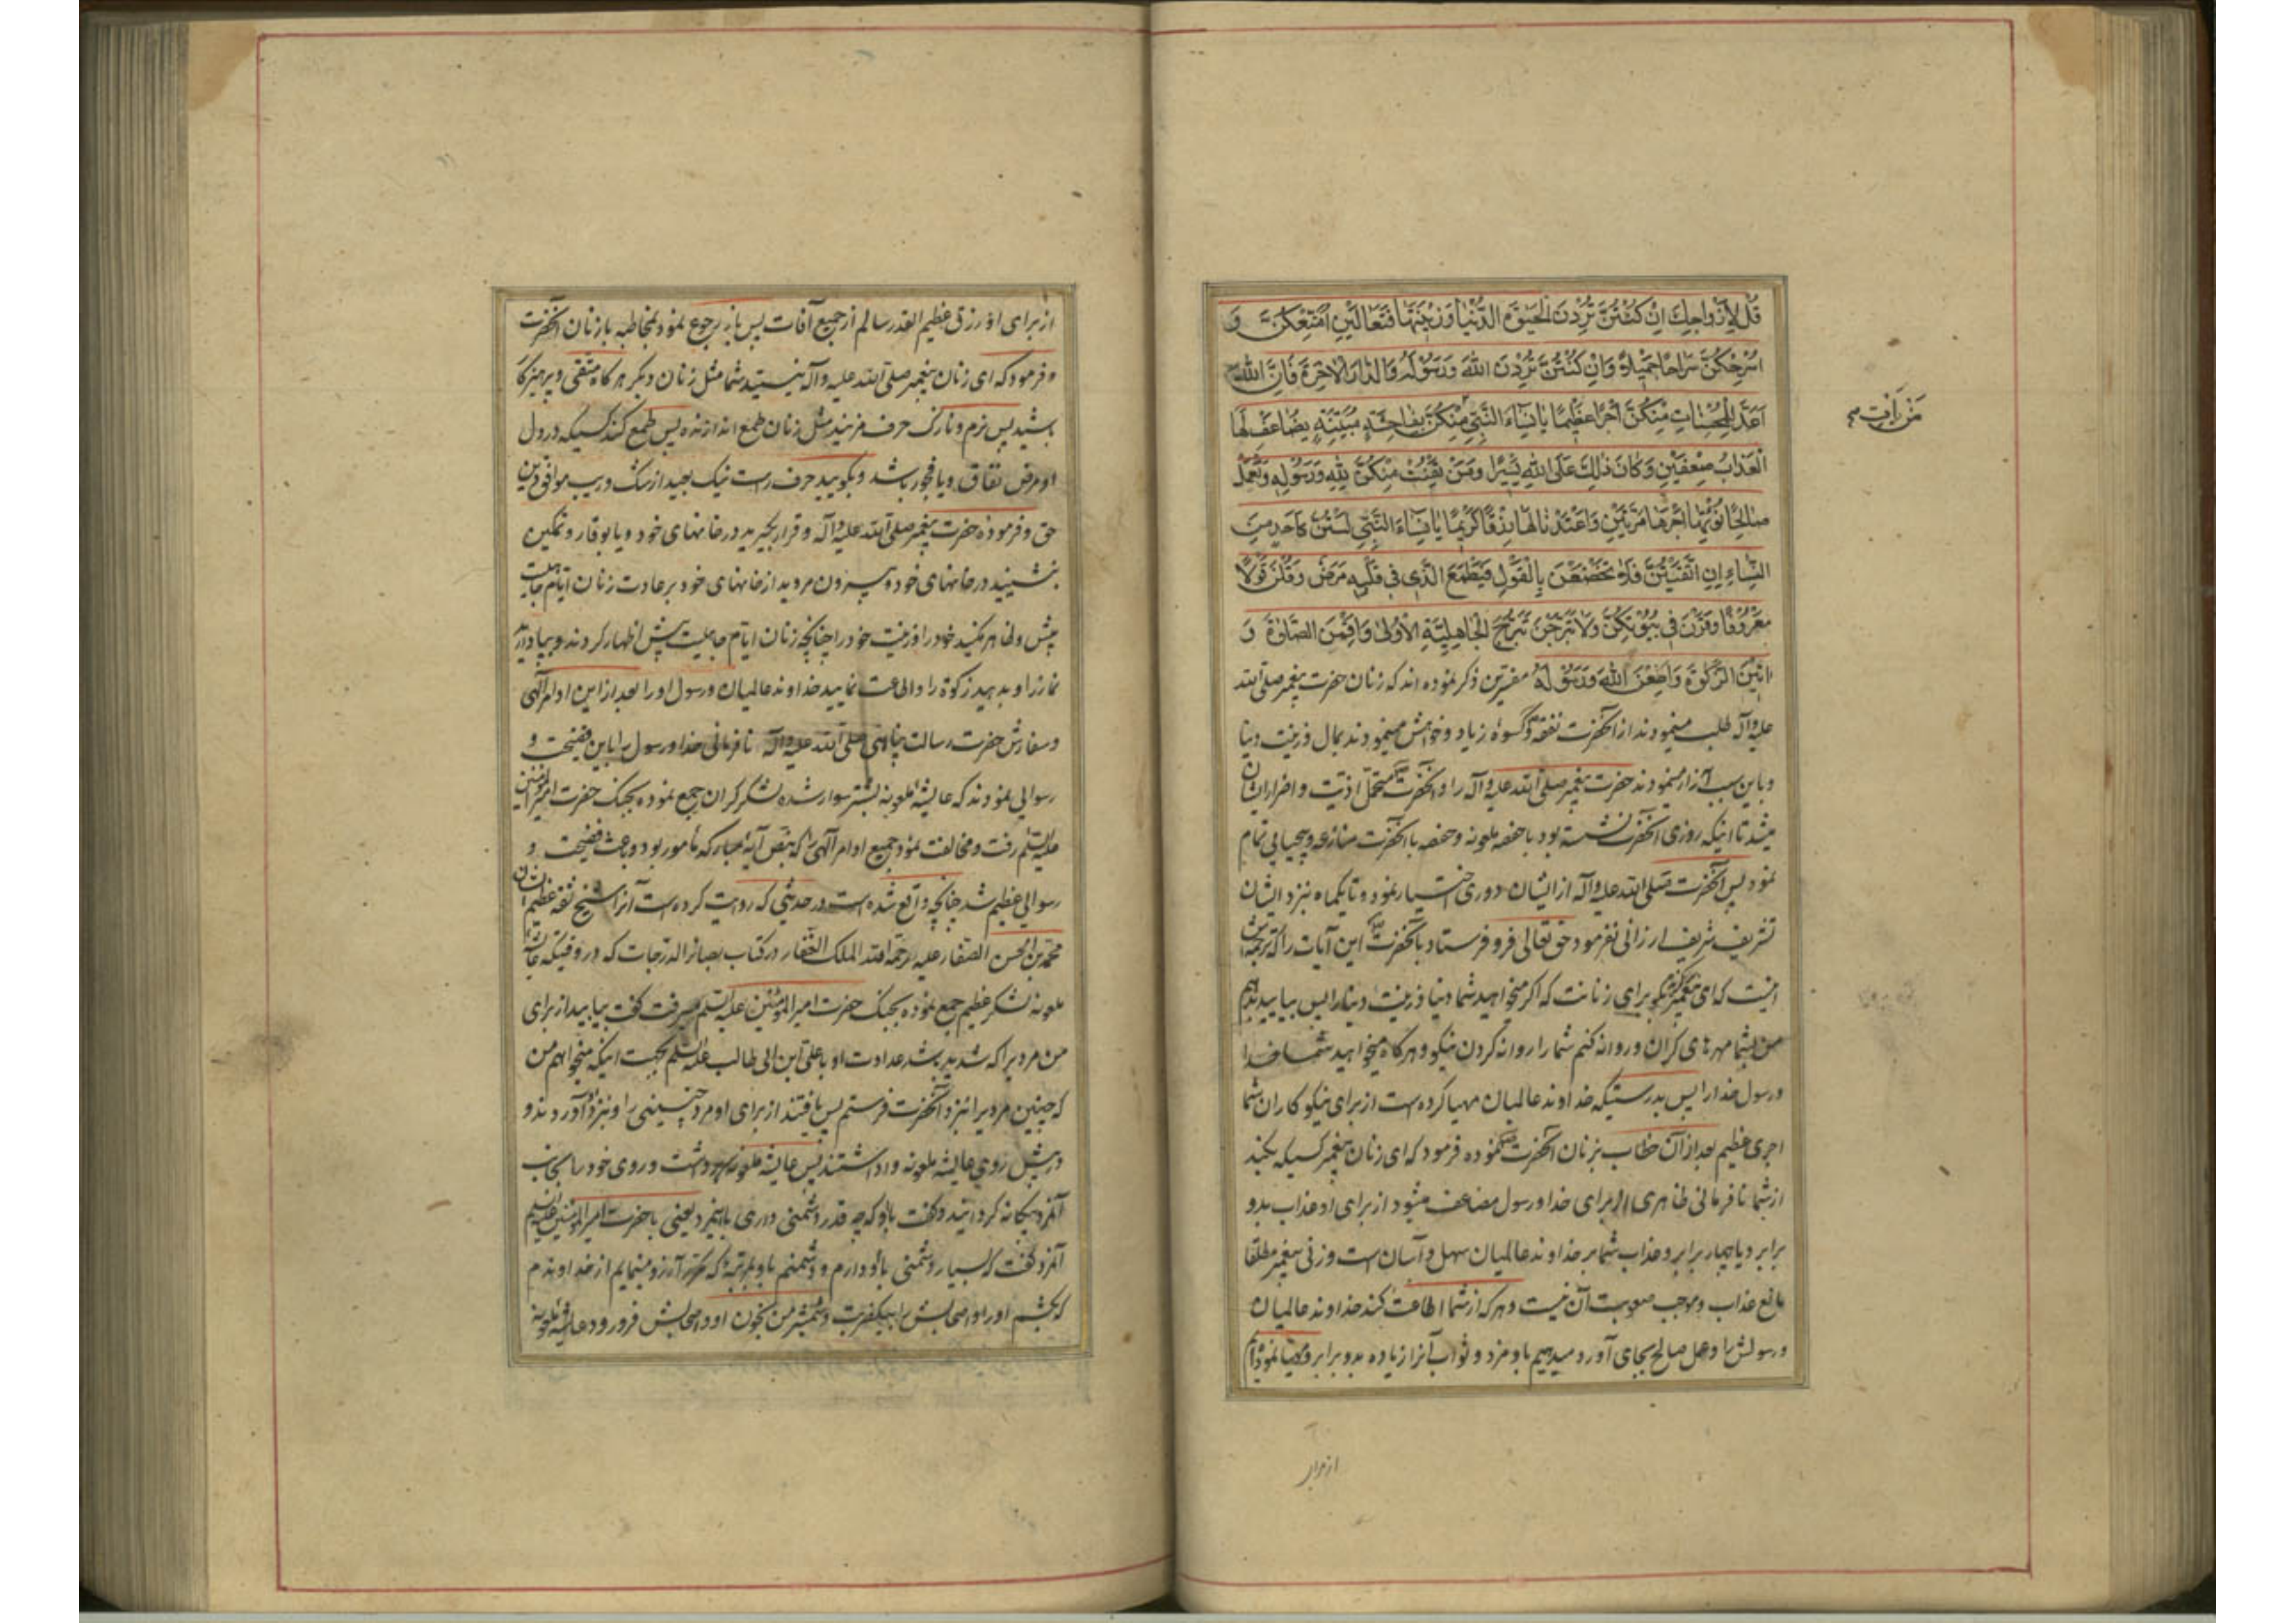 قُلْ لِأَزْواجِكَ اِنْ كُنْتُنَّ تُرِدْنَ الْحَيٰوةَ الدُّنْيا وَزِينَتَها فَتَعالَيْنَ اُمَتِّعْكُنَّ وَ
اُسَرِّحْكُنَّ سَراحًا جَمِيلًا وَاِنْ كُنْتُنَّ تُرِدْنَ اللّٰهَ وَرَسُولَهُ وَالدّارَ الْاٰخِرَةَ فَاِنَّ اللّٰهَ
اَعَدَّ لِلْمُحْسِناتِ مِنْكُنَّ اَجْرًا عَظِيمًا يا نِساءَ النَّبِيِّ مِنْكُنَّ بِفاحِشَةٍ مُبَيِّنَةٍ يُضاعَفْ لَهَا
مَنْ يَأْتِ صح
الْعَذابُ ضِعْفَيْنِ وَكانَ ذٰلِكَ عَلَى اللّٰهِ يَسِيرًا وَمَنْ يَقْنُتْ مِنْكُنَّ لِلّٰهِ وَرَسُولِهِ وَتَعْمَلْ
صالِحًا نُؤْتِها اَجْرَها مَرَّتَيْنِ وَاَعْتَدْنا لَها رِزْقًا كَرِيمًا يا نِساءَ النَّبِيِّ لَسْتُنَّ كَاَحَدٍ مِنَ
النِّساءِ اِنِ اتَّقَيْتُنَّ فَلا تَخْضَعْنَ بِالْقَوْلِ فَيَطْمَعَ الَّذِي فِي قَلْبِهِ مَرَضٌ وَقُلْنَ قَوْلًا
مَعْرُوفًا وَقَرْنَ فِي بُيُوتِكُنَّ وَلا تَبَرَّجْنَ تَبَرُّجَ الْجاهِلِيَّةِ الْاُولىٰ وَاَقِمْنَ الصَّلوٰةَ وَ
اٰتِينَ الزَّكوٰةَ وَاَطِعْنَ اللّٰهَ وَرَسُولَهُ مفسرین ذکر نموده اند که زنان حضرت پیغمبر صلی الله
علیه وآله طلب مینمودند از آنحضرت نفقه و کسوهٔ زیاد و خواهش مینمودند بمال و زینت دنیا
و باین سبب آزار مینمودند حضرت پیغمبر صلی الله علیه وآله را و آنحضرت متحمل اذیت و اضرار ایشان
میشد تا اینکه روزی آنحضرت نشسته بود با حفصه ملعونه و حفصه با آنحضرت منازعه و بیحیایی تمام
نمود پس آنحضرت صلی الله علیه وآله از ایشان دوری اختیار نمود و تا یکماه نزد ایشان
تشریف شریف ارزانی نفرمود حق تعالی فرو فرستاد بآنحضرت این آیات را که ترجمه اش
اینست که ای پیغمبر بگو برای زنانت که اگر میخواهید شما دنیا و زینت دنیا را پس بیایید بدهم
من بشما مهرهای گران و روانه کنم شما را روانه کردن نیکو و هرگاه میخواهید شما خدا
و رسول خدا را پس بدرستیکه خداوند عالمیان مهیا کرده است از برای نیکوکاران شما
اجری عظیم بعد از آن خطاب بزنان آنحضرت نموده فرمود که ای زنان پیغمبر کسیکه بکند
از شما نافرمانی ظاهری از برای خدا و رسول مضاعف میشود از برای او عذاب بدو
برابر و یا چهار برابر و عذاب شما بر خداوند عالمیان سهل و آسان است و زنی پیغمبر مطلقا
مانع عذاب و موجب صعوبت آن نیست و هرکه از شما اطاعت کند خداوند عالمیان
و رسولش را و عمل صالح بجای آورد میدهیم باو مزد و ثواب آنرا زیاده بدو برابر و مهیا نموده ایم
از برای
از برای او رزقی عظیم القدر سالم از جمیع آفات پس باز رجوع نمود بمخاطبه با زنان آنحضرت
و فرمود که ای زنان پیغمبر صلی الله علیه وآله نیستید شما مثل زنان دیگر هرگاه متقی و پرهیزکار
باشید پس نرم و نازک حرف مزنید مثل زنان طمع اندازنده پس طمع کند کسیکه در دل
او مرض نفاق و یا فجور باشد و بگویید حرف راست نیک بعید از شک و ریب موافق دین
حق و فرموده حضرت پیغمبر صلی الله علیه وآله و قرار بگیرید در خانهای خود و یا بوقار و تمکین
بنشینید در خانهای خود و بیرون مروید از خانهای خود بر عادت زنان ایام جاهلیت
پیش و ظاهر مکنید خود را و زینت خود را چنانچه زنان ایام جاهلیت پیش اظهار کردند و بپا دارید
نماز را و بدهید زکوة را و اطاعت نمایید خداوند عالمیان و رسول او را بعد از این اوامر الهی
و سفارش حضرت رسالت پناهی صلی الله علیه وآله نافرمانی خدا و رسول را باین فضیحت و
رسوایی نمودند که عایشهٔ ملعونه بشتر سوار شده لشکر گران جمع نموده بجنگ حضرت امیرالمؤمنین
علیه السلم رفت و مخالفت نمود جمیع اوامر الهی را که بنص آیهٔ مبارکه مأمور بود و باعث فضیحت و
رسوایی عظیم شد چنانچه واقع شده است در حدیثی که روایت کرده است آنرا شیخ ثقه عظیم الشان
محمد بن الحسن الصفار علیه رحمة الله الملک الغفار در کتاب بصائر الدرجات که در وقتیکه عایشه
ملعونه لشکر عظیم جمع نموده بجنگ حضرت امیرالمؤمنین علیه السلم میرفت گفت بیابید از برای
من مردیرا که شدید باشد عداوت او با علی ابن ابی طالب علیه السلم بجهت اینکه میخواهم من
که چنین مردیرا نزد آنحضرت فرستم پس یافتند از برای او مرد چنینی را و نزد او آوردند و
در پیش روی عایشه ملعونه واداشتند پس عایشه ملعونه سر برداشت و روی خود را بجانب
آنمرد بیگانه گردانید و گفت باو که چه قدر دشمنی داری باینمرد یعنی با حضرت امیرالمؤمنین علیه السلم
آنمرد گفت که بسیار دشمنی باو دارم و دشمنیم باو بمرتبه که مکرر آرزو مینمایم از خداوندم
که بکشم او را و اصحابش را بیکضربت و شمشیر من بخون او و اصحابش فرو رود عایشه ملعونه